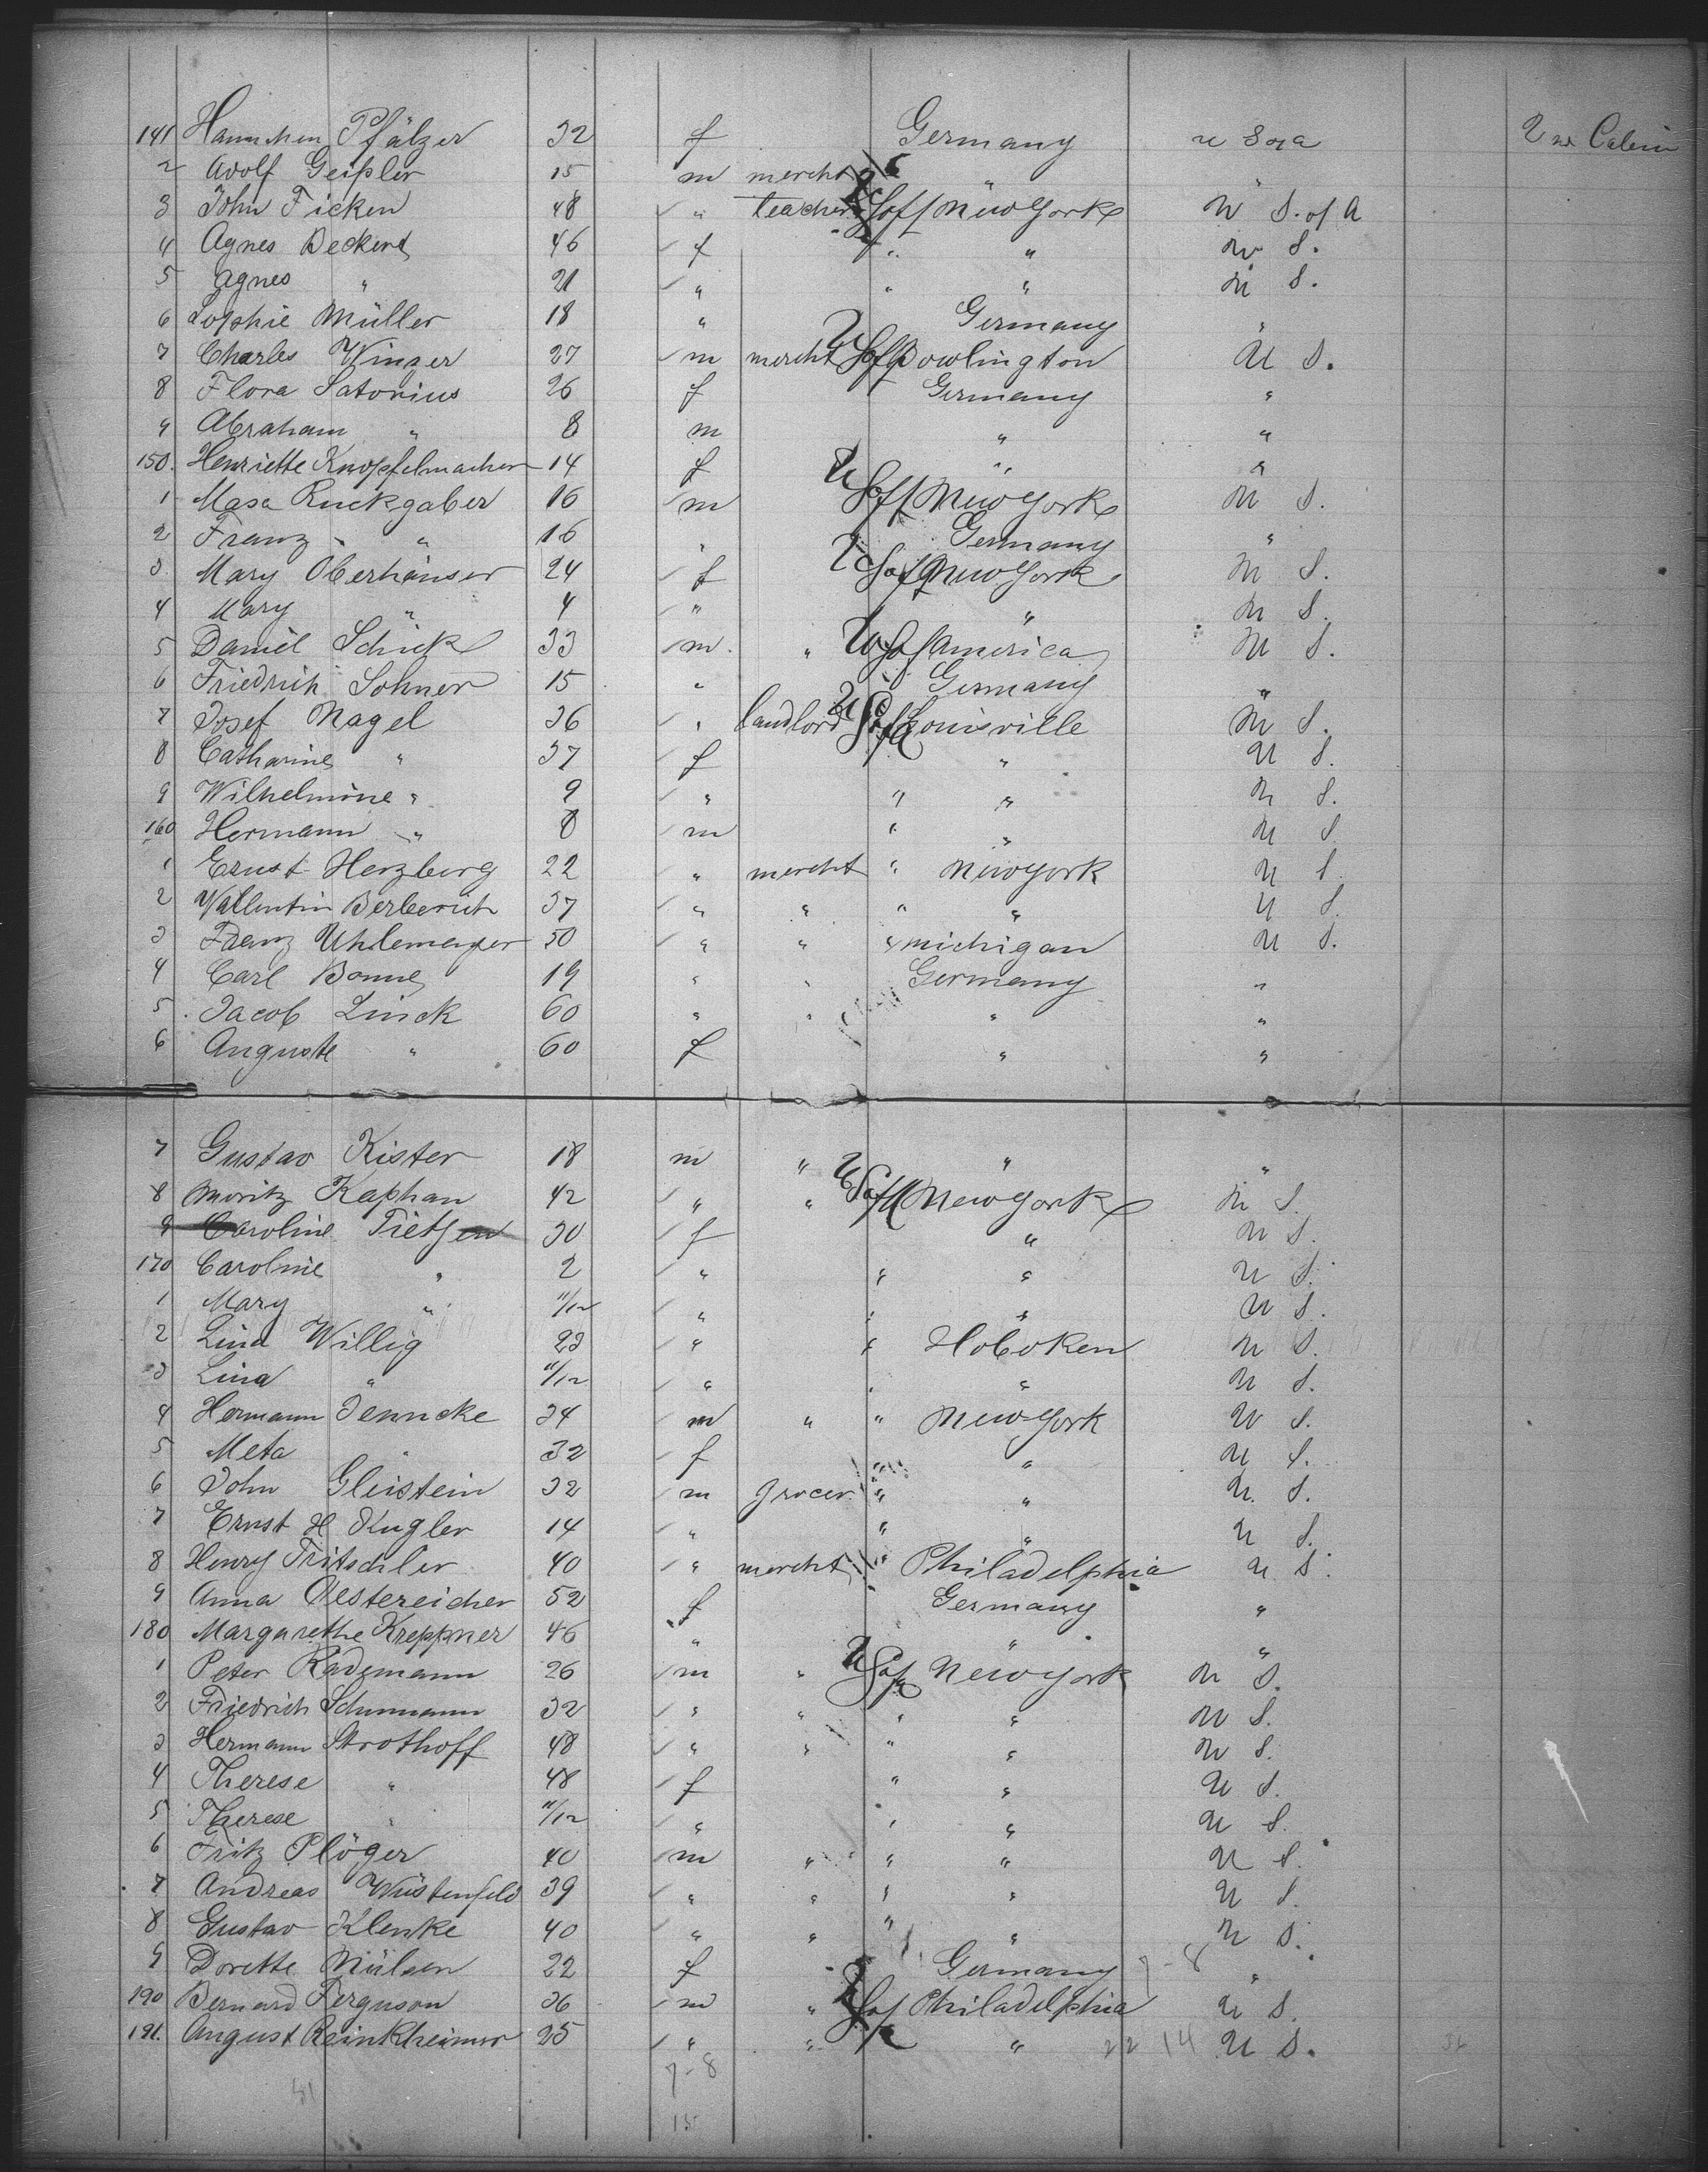 141 Hannchen Pfälzer 32 f Germany U S of A 2nd Cabin
2 Adolf Geißler 15 m mercht " "
3 John Ficken 48 " teacher U S of A New York U S. of A
4 Agnes Beckert 46 f " " U S.
5 Agnes " 21 " " " U S.
6 Sophie Müller 18 " Germany "
7 Charles Winzer 27 m mercht U S of A Bowlington U S.
8 Flora Satorius 26 f Germany "
9 Abraham " 8 m " "
150. Henriette Knopfelmacher 14 f " "
1 Masa Ruckgaber 16 m U S of A New York U S.
2 Franz " 16 " Germany "
3 Mary Oberhäuser 24 f U S of A New York U S.
4 Mary " 4 " " U S.
5 Daniel Schick 33 m. " U S of America U S.
6 Friedrich Sohner 15 " Germany "
7 Josef Nagel 36 " landlord U S of A Louisville U S.
8 Catharine " 37 f " U S.
9 Wilhelmine " 9 " " " U S.
160 Hermann " 8 m " " U S
1 Ernst Herzberg 22 " mercht " New York U S
2 Vallentin Berberich 37 " " " " U S.
3 Franz Uhlemeyer 50 " " " Michigan U S.
4 Carl Bonne 19 " " Germany "
5 Jacob Linck 60 " " " "
6 Auguste " 60 f " "
7 Gustav Kister 18 m " " "
8 Moritz Kaphan 42 " " U S of A New York U S.
9 Caroline Tietjen 30 f " U S.
170 Caroline " 2 " " " U S.
1 Mary " 11/12 " " " U S.
2 Lina Willig 23 " " Hoboken U S.
3 Lina " 11/12 " " " U S.
4 Hermann Jenncke 34 m " " New York U S.
5 Meta " 32 f " " U S.
6 John Gleistein 32 m grocer " " U. S.
7 Ernst H Kugler 14 " " " U S.
8 Henry Fritschler 40 " mercht " Philadelphia U S.
9 Anna Oestereicher 52 f Germany "
180 Margarethe Kreppner 46 " " "
1 Peter Rademann 26 m " U S of A New York U S.
2 Friedrich Schumann 32 " " " " U S.
3 Hermann Strothoff 48 " " " " U S.
4 Therese " 48 f " " U S.
5 Therese " 11/12 " " " U S.
6 Fritz Plöger 40 m " " " U S.
7 Andreas Wüstenfeld 39 " " " " U S.
8 Gustav Klenke 40 " " " " U S.
9 Dorette Mülsen 22 f Germany 7-8 "
190 Bernard Ferguson 36 m " U S of A Philadelphia U S.
191. August Reinkheimer 25 " " " 22 14 U S.
7-8